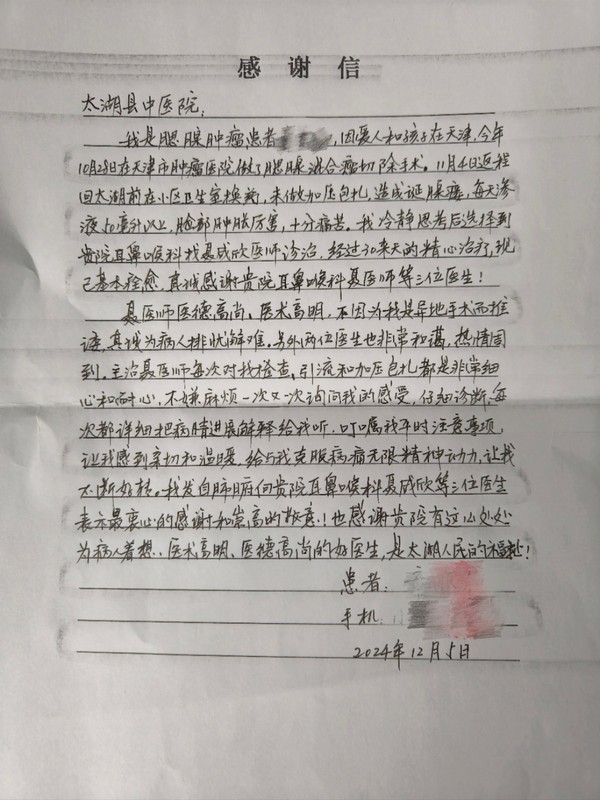 感谢信
太湖县中医院：
我是腮腺肿瘤患者，因爱人和孩子在天津，今年
10月28日在天津市肿瘤医院做了腮腺混合瘤切除手术。11月4日返程
回太湖前在小区卫生室换药，未做加压包扎，造成诞腺瘘，每天渗
液50毫升以上，脸部肿胀厉害，十分痛苦。我冷静思考后选择到
贵院耳鼻喉科找聂成欣医师诊治，经过30来天的精心治疗，现
已基本痊愈，真诚感谢贵院耳鼻喉科聂医师等三位医生！
聂医师医德高尚、医术高明，不因为我是异地手术而推
诿，真线为病人排忧解难。另外两位医生也非常和蔼，热情周
到。主治聂医师每次对我检查、引流和加压包扎都是非常细
心和耐心，不嫌麻烦一次又一次询问我的感受，仔细诊断，每
次都详细把病情进展解释给我听，叮嘱我平时注意事项，
让我感到亲切和温暖，给与我克服病痛无限精神动力，让我
不断好转。我发自肺腑向贵院耳鼻喉科聂成欣等三位医生
表示最衷心的感谢和崇高的敬意！也感谢贵院有这么处处
为病人着想、医术高明、医德高尚的好医生，是太湖人民的福祉！
患者：
手机：
2024年12月5日